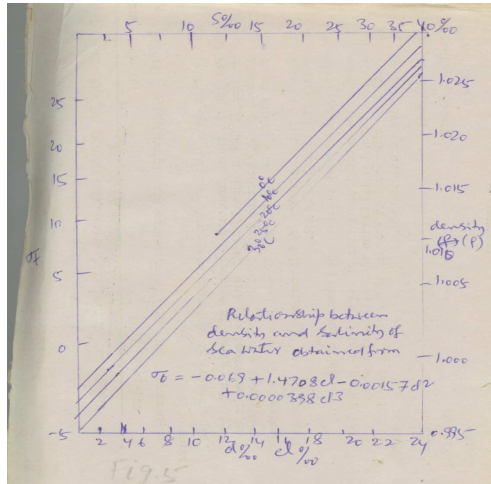 S‰
5 10 15 20 25 30 35 40‰
25
20
15
10
5
0
-5
σt
1.025
1.020
1.015
density
(ρ)
1.005
1.000
0.995
0°C
10°C
20°C
30°C
Relationship between
density and salinity of
sea water obtained from
σ0 = -0.069 + 1.4708 cl - 0.00157 cl2
+ 0.0000398 cl3
2 4 6 8 10 12 14 16 18 20 22 24
cl‰
Fig. 5